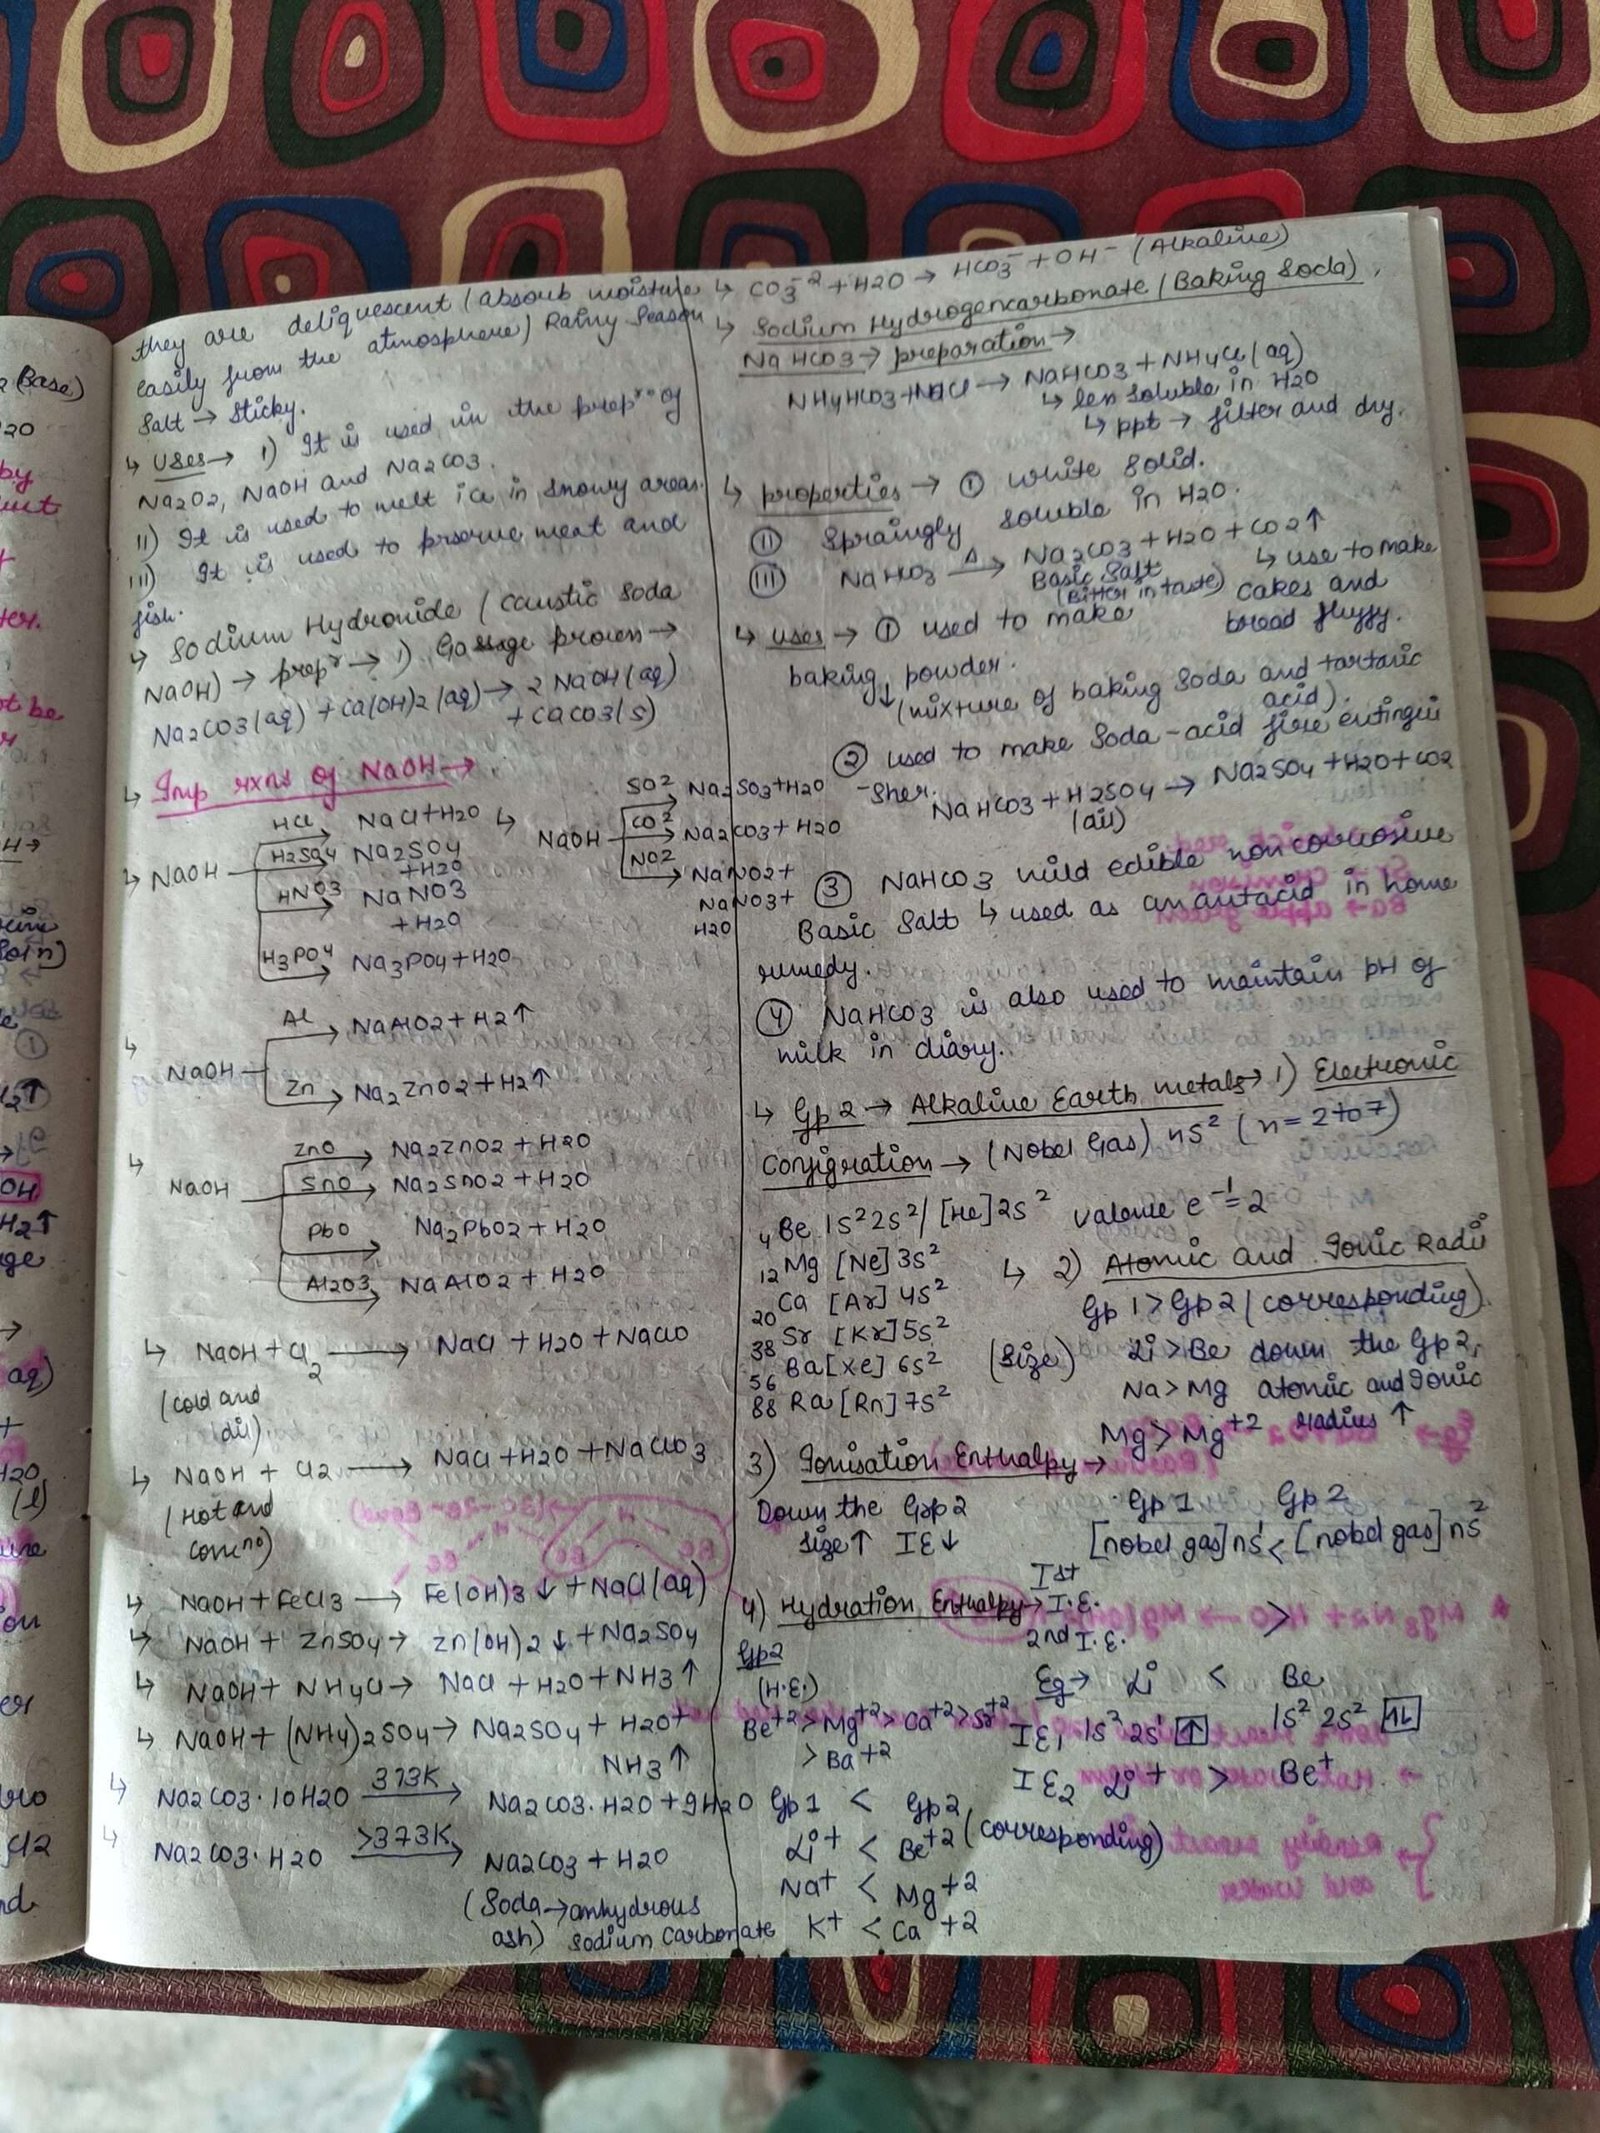 they are deliquescent (absorb moisture
easily from the atmosphere) Rainy Season
Salt → Sticky.
↳ Uses → 1) It is used in the prepⁿ of
Na2O2, NaOH and Na2CO3.
11) It is used to melt ice in snowy areas.
111) It is used to prserve meat and
fish.
↳ Sodium Hydroxide (Caustic Soda
NaOH) → prepⁿ → 1) Gossage process →
Na2CO3(aq) + Ca(OH)2(aq) → 2 NaOH(aq)
+ CaCO3(s)
↳ Imp rxns of NaOH →
↳ NaOH HCl → NaCl + H2O
H2SO4 → Na2SO4
+ H2O
HNO3 → NaNO3
+ H2O
H3PO4 → Na3PO4 + H2O
↳ NaOH SO2 → Na2SO3 + H2O
CO2 → Na2CO3 + H2O
NO2 → NaNO2 +
NaNO3 +
H2O
↳ NaOH Al → NaAlO2 + H2↑
Zn → Na2ZnO2 + H2↑
↳ NaOH ZnO → Na2ZnO2 + H2O
SnO → Na2SnO2 + H2O
PbO → Na2PbO2 + H2O
Al2O3 → NaAlO2 + H2O
↳ NaOH + Cl2 → NaCl + H2O + NaClO
(cold and
dil).
↳ NaOH + Cl2 → NaCl + H2O + NaClO3
(Hot and
concⁿᵒ)
↳ NaOH + FeCl3 → Fe(OH)3↓ + NaCl(aq)
↳ NaOH + ZnSO4 → Zn(OH)2↓ + Na2SO4
↳ NaOH + NH4Cl → NaCl + H2O + NH3↑
↳ NaOH + (NH4)2SO4 → Na2SO4 + H2O +
NH3↑
↳ Na2CO3·10H2O 373K → Na2CO3·H2O + 9H2O
↳ Na2CO3·H2O >373K → Na2CO3 + H2O
(Soda → anhydrous
ash) sodium Carbonate
↳ CO3⁻² + H2O → HCO3⁻ + OH⁻ (Alkaline)
↳ Sodium Hydrogencarbonate (Baking Soda),
NaHCO3 → preparation →
NH4HCO3 + NaCl → NaHCO3 + NH4Cl(aq)
↳ less soluble in H2O
↳ ppt → filter and dry.
↳ properties → ① White Solid.
⑪ Spraingly soluble in H2O.
⑪⑪ NaHCO3 Δ → Na2CO3 + H2O + CO2↑
Basic Salt ↳ use to make
(Bitter in taste) cakes and
bread fluffy.
↳ Uses → ① used to make
baking powder.
↓ (mixture of baking Soda and tartaric
acid).
② used to make Soda-acid fire extingui
-sher. NaHCO3 + H2SO4 → Na2SO4 + H2O + CO2
(dil)
③ NaHCO3 mild edible non corrosive
Basic Salt ↳ used as an antacid in home
remedy.
④ NaHCO3 is also used to maintain pH of
milk in diary.
↳ Gp 2 → Alkaline Earth metals → 1) Electronic
Configration → (Nobel Gas) ns² (n = 2 to 7)
4Be 1s²2s² / [He]2s² valence e⁻¹ = 2
12Mg [Ne]3s²
20Ca [Ar]4s²
38Sr [Kr]5s²
56Ba [Xe]6s²
88Ra [Rn]7s²
↳ 2) Atomic and Ionic Radii
Gp 1 > Gp 2 (corresponding)
(Size) Li > Be down the Gp 2,
Na > Mg atomic and Ionic
Mg > Mg⁺² radius ↑
3) Ionisation Enthalpy →
Down the Grp 2
Size↑ IE↓
Gp 1 Gp 2
[nobel gas]ns¹ < [nobel gas]ns²
Ist
I.E. 
2nd I.E. >
Eg → Li < Be
IE1 1s² 2s¹ ↑ 1s² 2s² ↑↓
IE2 Li⁺ > Be⁺
4) Hydration Enthalpy →
Gp2
(H.E.)
Be⁺² > Mg⁺² > Ca⁺² > Sr⁺²
> Ba⁺²
Gp 1 < Gp 2
Li⁺ < Be⁺² (corresponding)
Na⁺ < Mg⁺²
K⁺ < Ca⁺²